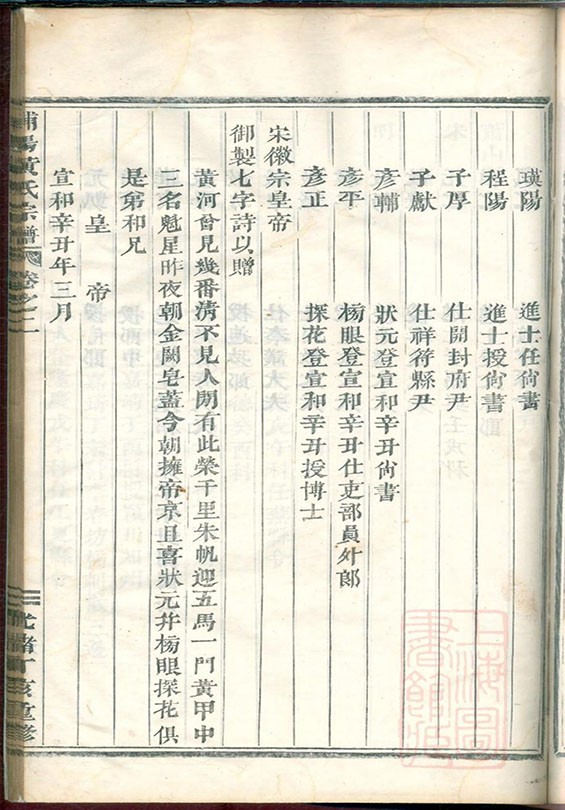 瑛陽 進士任尙書
程陽 進士授尙書
子厚 仕開封府尹
子獻 仕祥符縣尹
彥輔 狀元登宣和辛丑尙書
彥平 榜眼登宣和辛丑仕吏部員外郎
彥正 探花登宣和辛丑授博士
宋徽宗皇帝
御製七字詩以贈
黃河曾見幾番淸不見人閒有此榮千里朱帆迎五馬一門黃甲中
三名魁星昨夜朝金闕皂蓋今朝擁帝京且喜狀元幷榜眼探花俱
是弟和兄
皇帝
宣和辛丑年三月
浦陽黃氏宗譜 卷之二
光緖丁亥重修
上海圖書館藏